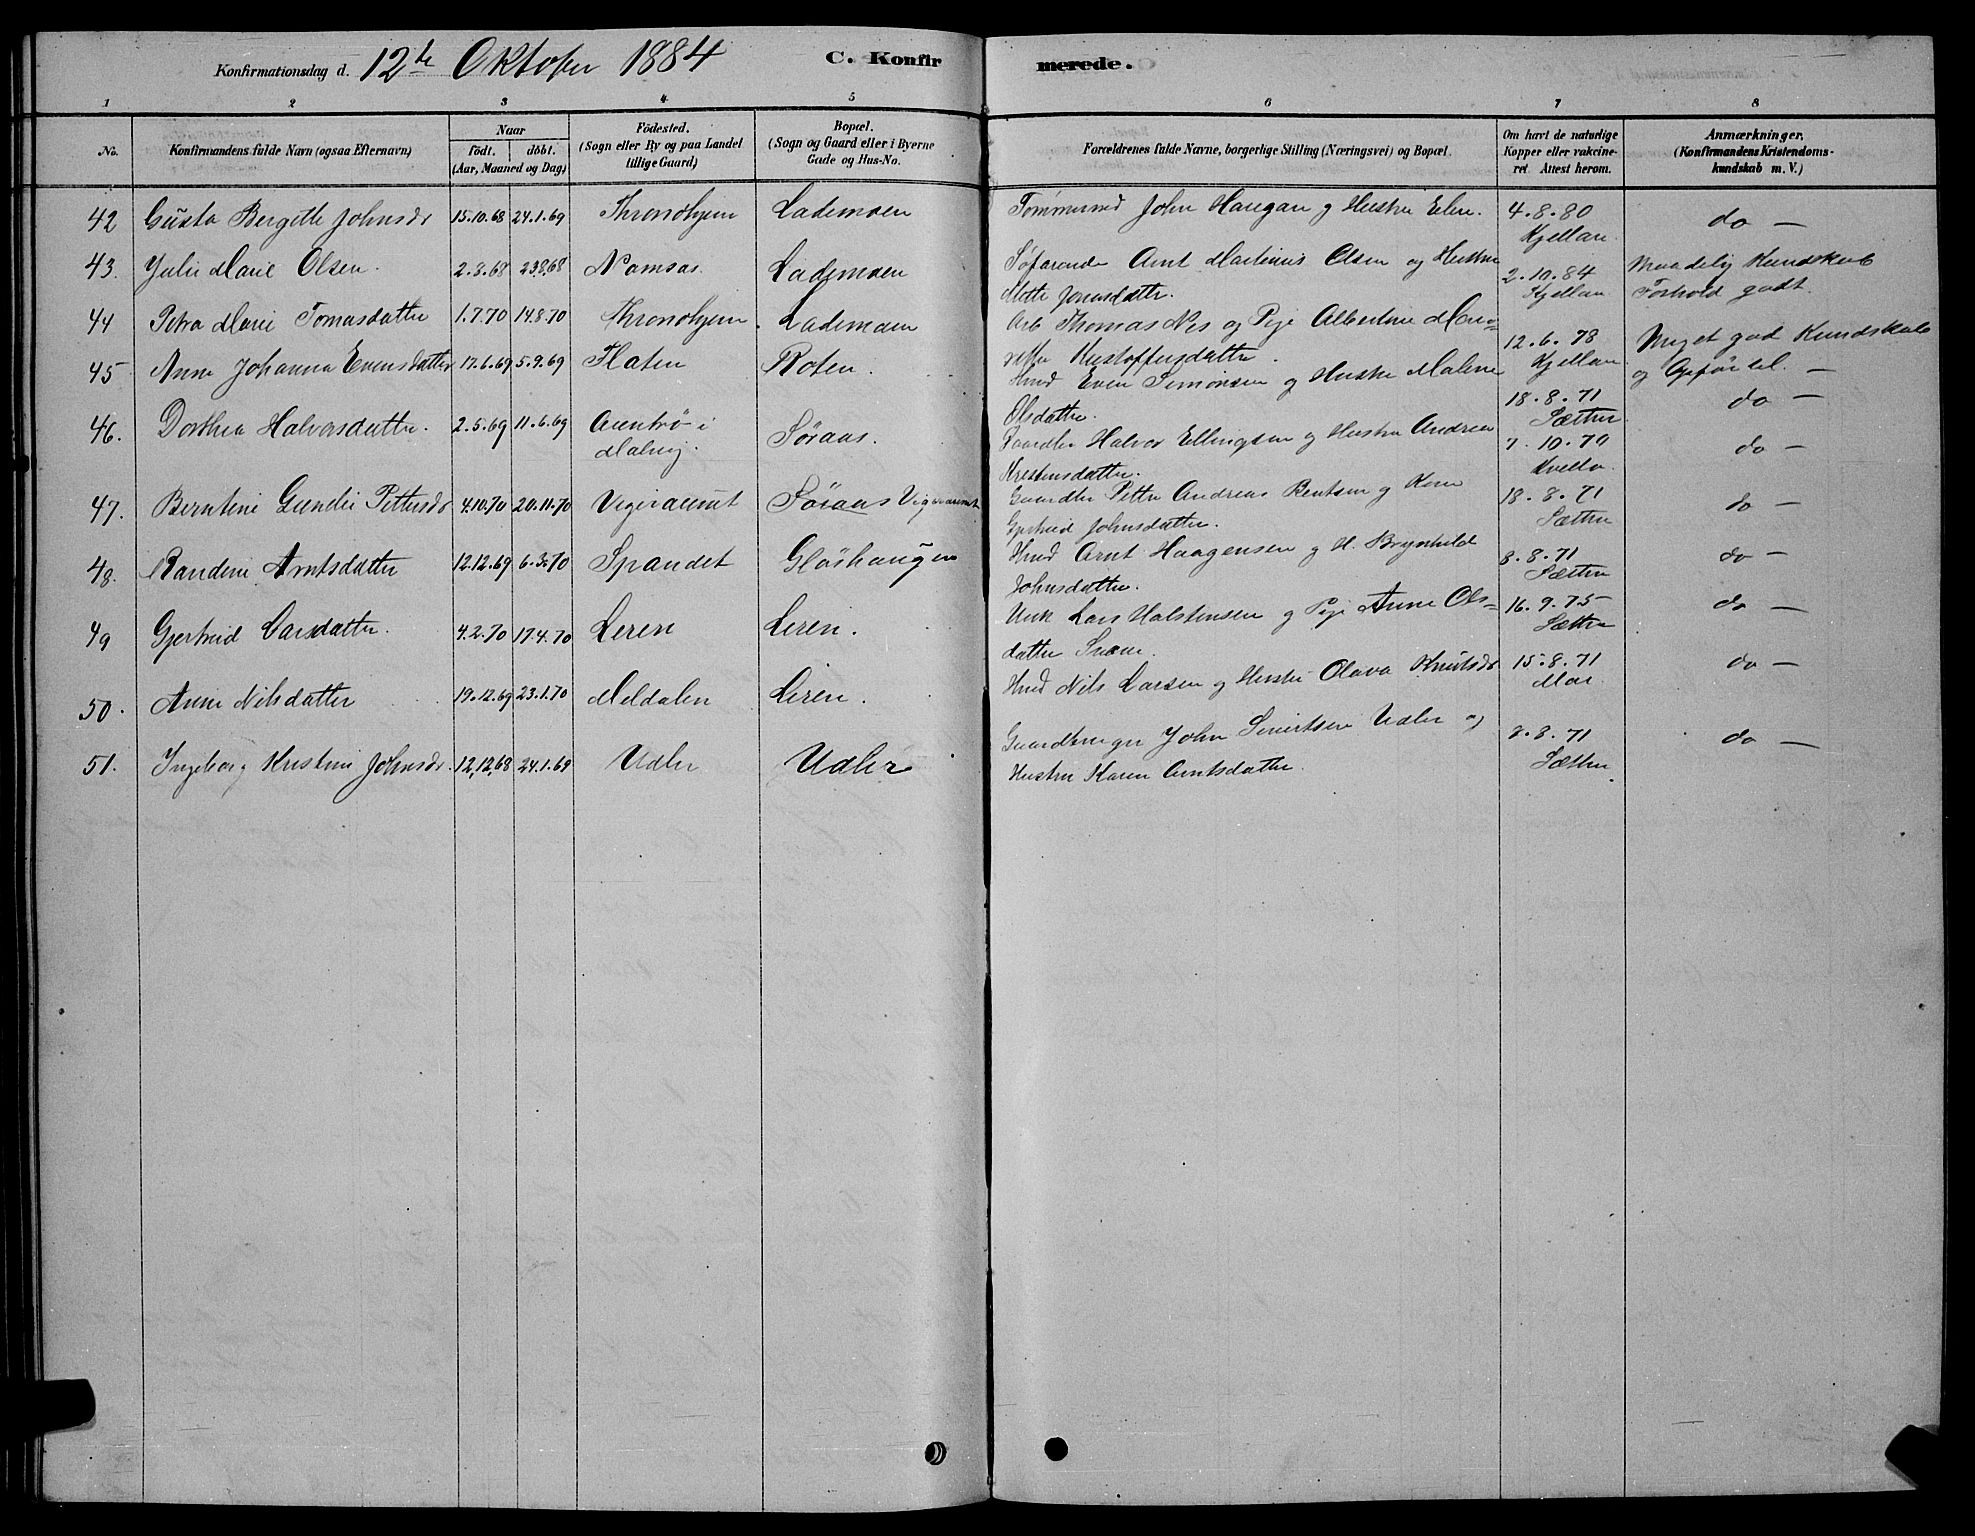 Konfirmationsdag d. 12te Oktober 1884 C. Konfirmerede.
1 2 3 4 5 6 7 8
No. Konfirmandens fulde Navn (ogsaa Efternavn)
Naar
födt. döbt.
(Aar, Maaned og Dag)
Födested.
(Sogn eller By og paa Landet
tillige Gaard)
Bopæl.
(Sogn og Gaard eller i Byerne
Gade og Hus-No.
Forældrenes fulde Navne, borgerlige Stilling (Næringsvei) og Bopæl.
Om havt de naturlige
Kopper eller vakcine-
ret Attest herom.
Anmærkninger,
(Konfirmandens Kristendoms-
kundskab m. V.)
42 Gusta Bergitte Johnsdr 15.10.68 24.1.69 Throndhjem Lademoen Tømmermd John Haugan og Hustru Elen. 4.8.80 do —
Kjelland
43. Julie Marie Olsen. 2.8.68 23.8.68 Namsos. Lademoen Søfarende Arnt Martinus Olsen og Hustru 2.10.84 Maadelig Kundskab
Mette Jonusdatter. Kjelland Forhold godt.
44 Petra Marie Tomasdatter 1.7.70 14.8.70 Throndhjem. Lademoen Arb Thomas Nes og Pige Albertine 12.6.78 Meget god Kundskab
Kristoffersdatter. Kjelland og Opførsel. —
45 Anne Johanna Evensdatter 17.6.69 5.9.69 Flaten Roten. Hmd Even Simonsen og Hustru Malene 18.8.71 do —
Olsdatter. Sæther
46. Dorthea Halvorsdatter. 2.5.69 11.6.69 i Malvig. Søraas. Halvor Ellingsen og Hustru Andrea 7.10.79 do —
Krestensdatter.
47. Berntine Pettersdr 4.10.70 20.11.70 Vigeraunet Søraas Vigeraunet Gaardbr Petter Andreas Bentsen og Kone 18.8.71 do —
Gjertrud Johnsdatter. Sæther
48. Randine Arntsdatter 12.12.69 6.3.70 Spandet Gløshaugen Hmd Arnt Haagensen og H. Brynhild 8.8.71 do —
Johnsdatter. Sæther
49 Gjertrud Larsdatter. 4.2.70 17.4.70 Leren Leren. Lars Halstensen og Pige Anne Ols- 16.9.75 do —
datter Sæther
50. Anne Nilsdatter 19.12.69 23.1.70 Meldalen Leren. Hmd Nils Larsen og Hustru Olava Knutsdr 15.8.71 do —
51. Ingeborg Kristine Johnsdr. 12.12.68 24.1.69 Udler Udler Gaardbruger John Sivertsen Udler og 8.8.71 do —
Hustru Karen Arntsdatter. Sæther